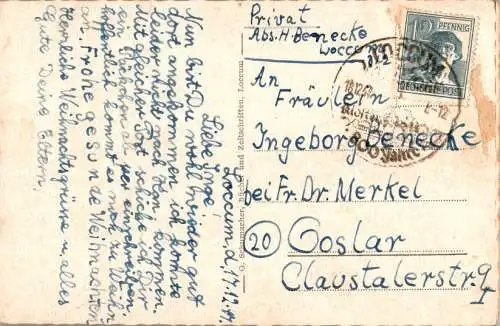 Loccum, d. 17.12.47.
Liebe Inge!
Nun bist Du wohl wieder gut
dort angekommen, ich konnte
leider nicht nach kommen.
Mit gleicher Post schicke ich Dir
ein Päckchen ab per einschreiben.
hoffentlich kommt es noch zu Weih-
an. Frohe gesunde Weihnachten
Herzliche Weihnachtsgrüße u. alles
Gute Deine Eltern.
G. Schumacher, Bücher und Zeitschriften, Loccum
Privat
Abs. H. Benecke
Loccum
12 PFENNIG
DEUTSCHE POST
LOCCUM
800 Jahre
An
Fräulein
Ingeborg Benecke
bei Fr. Dr. Merkel
(20) Goslar
Claustalerstr. 9
I